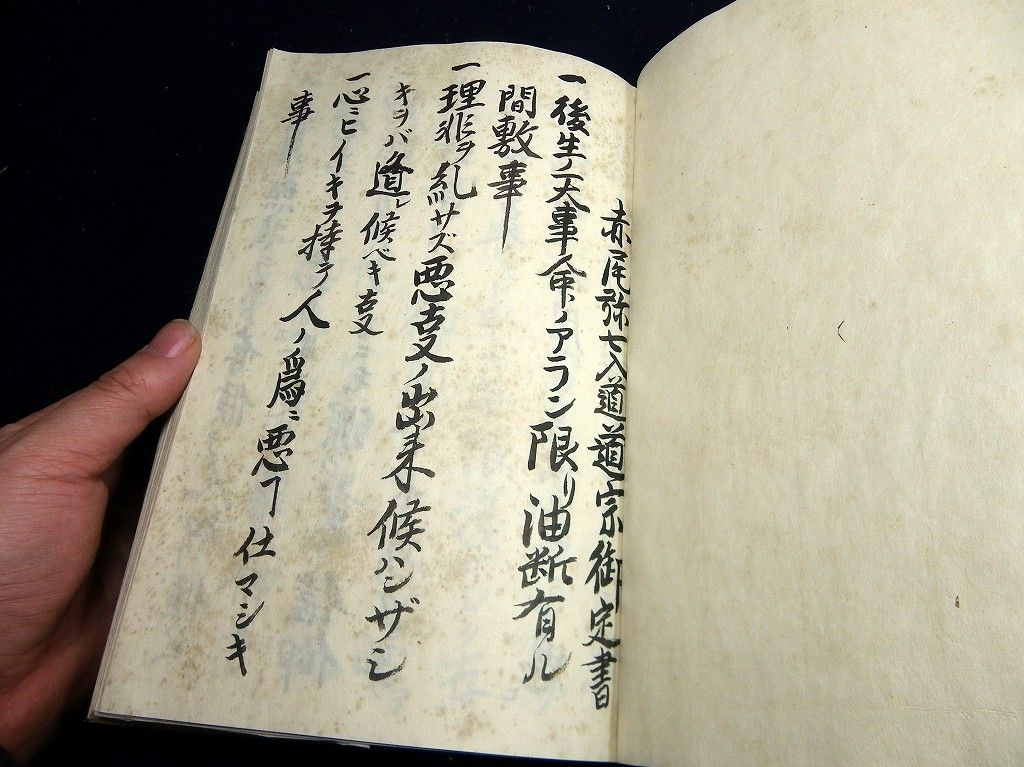 赤尾弥七入道道宗御定書
一後生ノ一大事命ノアラン限リ油断有ル
間敷事
一理非ヲ乱サズ悪支ノ出来候ハンザシ
キヲバ遁レ候ベキ支
一心ニヒイキヲ持テ人ノ為ニ悪ヿ仕マジキ
事